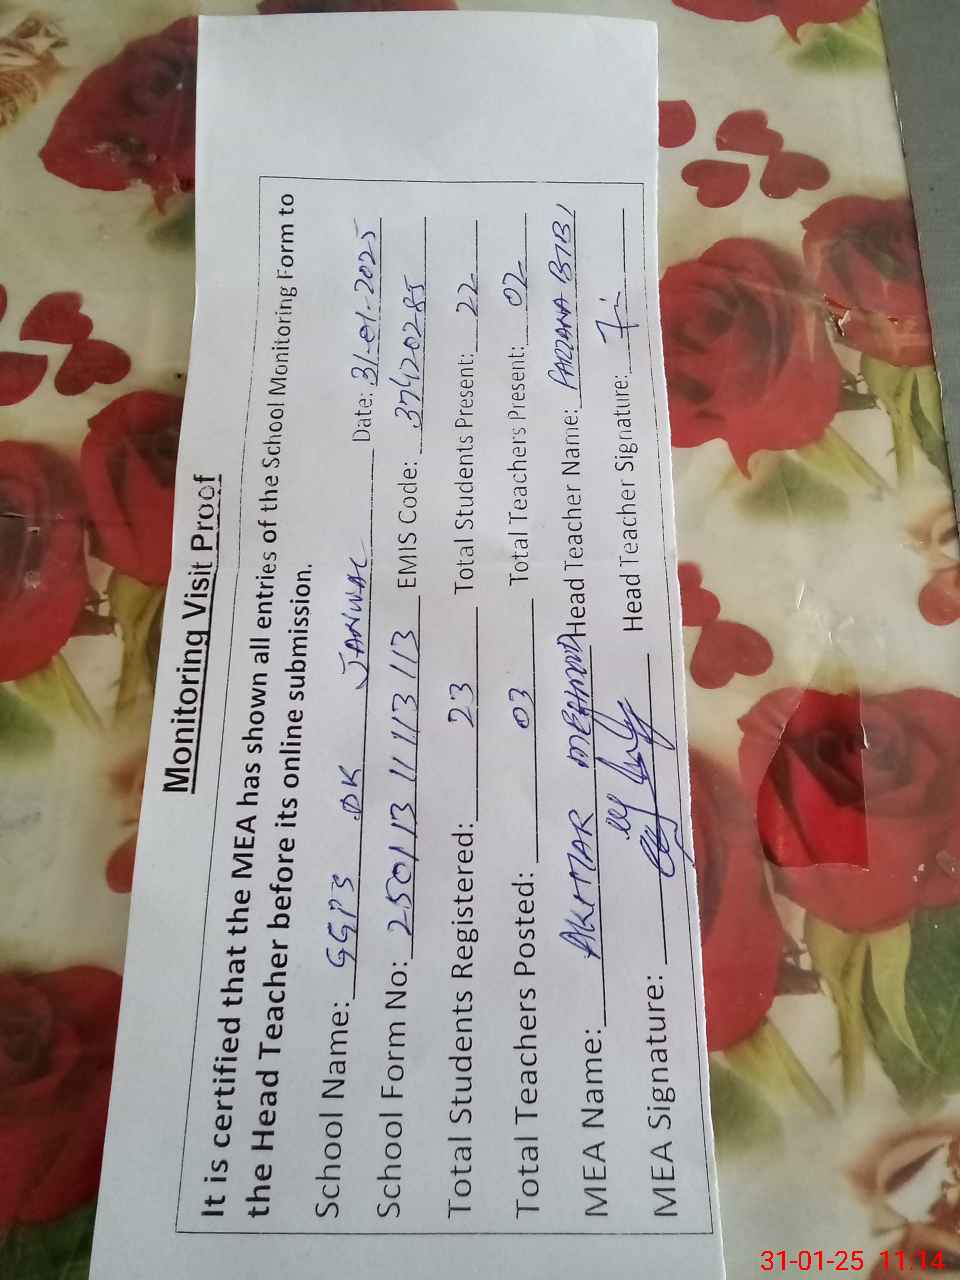 Monitoring Visit Proof
It is certified that the MEA has shown all entries of the School Monitoring Form to
the Head Teacher before its online submission.
School Name: GGPS DK JANWAL Date: 31-01-2025
School Form No: 250113 11 113 113 EMIS Code: 37420285
Total Students Registered: 23 Total Students Present: 22
Total Teachers Posted: 03 Total Teachers Present: 02
MEA Name: AKHTAR MEHMOOD Head Teacher Name: FARZANA BIBI
MEA Signature: Head Teacher Signature:
31-01-25 11:14